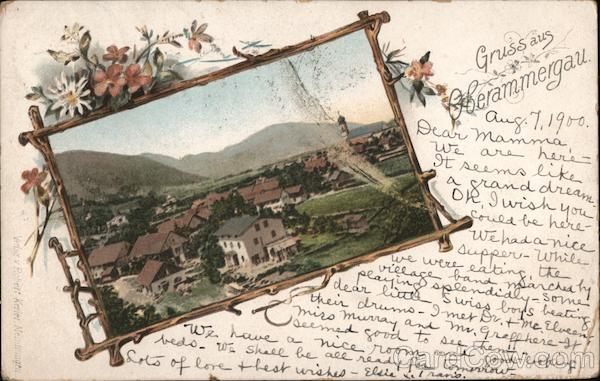 Gruss aus
Oberammergau.
Aug. 7, 1900.
Dear Mamma,
We are here-
It seems like
a grand dream
Oh, I wish you
could be here-
We had a nice
supper- While
we were eating, the
village band marched by
playing splendidly- some
dear little Swiss boys beating
their drums. I met Dr. + Mc.Elveen
Miss Murray and Mr. Groff here- It
seemed good to see
We have a nice room
beds- We shall be all ready for tomorrow
Lots of love + best wishes- Elsie L. Travis.
CardCow.com